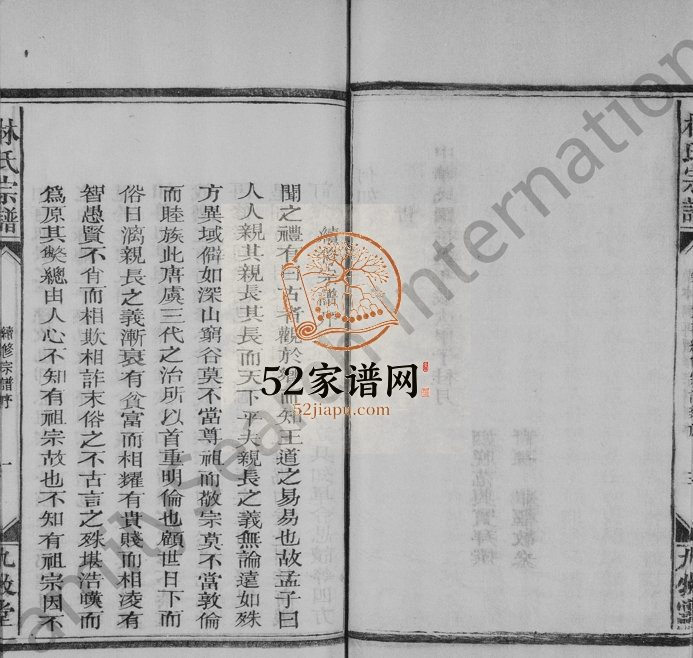 續修宗譜
聞之禮有曰古者觀於鄉而知王道之易易也故孟子曰
人人親其親長其長而天下平夫親長之義無論遠如殊
方異域僻如深山窮谷莫不當尊祖而敬宗莫不當敦倫
而睦族此唐虞三代之治所以首重明倫也顧世日下而
俗日漓親長之義漸衰有貧富而相耀有貴賤而相凌有
智愚賢不肖而相欺相詐末俗之不古言之殊堪浩嘆而
爲原其獘總由人心不知有祖宗故也不知有祖宗因不
林氏宗譜
續修宗譜序
一
九牧堂
林氏宗譜
九牧堂
52家谱网
52jiapu.com
FamilySearch International